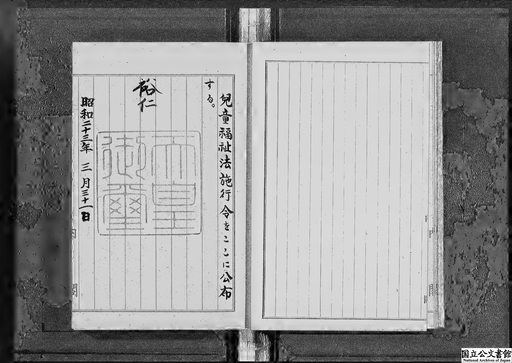 兒童福祉法施行令をここに公布
する。
裕仁
天皇御璽
昭和二十三年三月三十一日
国立公文書館
National Archives of Japan